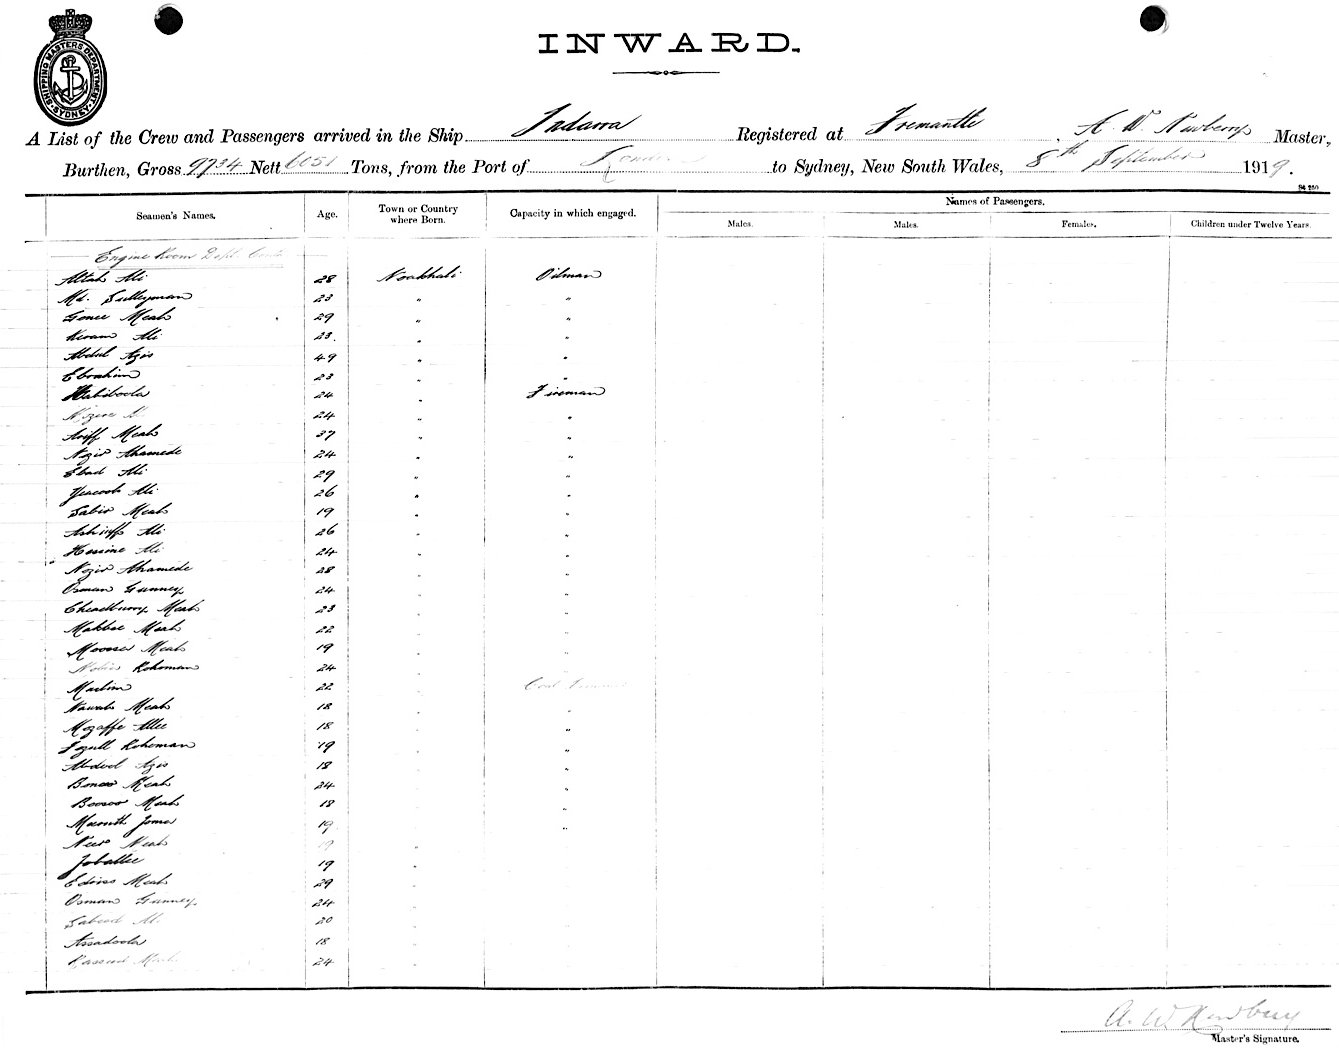 SHIPPING MASTERS DEPARTMENT. SYDNEY
INWARD.
A List of the Crew and Passengers arrived in the Ship Indarra Registered at Fremantle . A. W. Newbery Master,
Burthen, Gross 9734 Nett 6051 Tons, from the Port of London to Sydney, New South Wales, 8th September 1919.
Seamen's Names. Age. Town or Country where Born. Capacity in which engaged. Names of Passengers.
Males. Males. Females. Children under Twelve Years.
Engine Room Dept.
Altab Ali 28 Noakhali Oilman
Md. Sulleyman 23 " "
Gonee Meah 29 " "
Keram Ali 23. " "
Abdul Azis 49 " "
Ebrahim 23 " "
Habiboola 24 " Fireman
24 " "
Ariff Meah 37 " "
Nozir Ahamede 24 " "
Ebad Ali 29 " "
Yeacoob Ali 26 " "
Sabir Meah 19 " "
Ashroff Ali 26 " "
Hossine Ali 24 " "
Nozir Ahamede 28 " "
Osman Gunney 24 " "
Meah 23 " "
Makboe Meah 22 " "
Moosa Meah 19 " "
Rohoman 24 " "
22 " Coal
Nawab Meah 18 " "
Mozaffe Allee 18 " "
Fozull Rohoman 19 " "
Abdool Azis 18 " "
Meah 24 " "
Meah 18 " "
19 " "
Meah 19 "
Joballee 19 "
Edriss Meah 29 "
Osman Gunney 24 "
20 "
Assadoola 18 "
Meah 24 "
A. W. Newbery
Master's Signature.